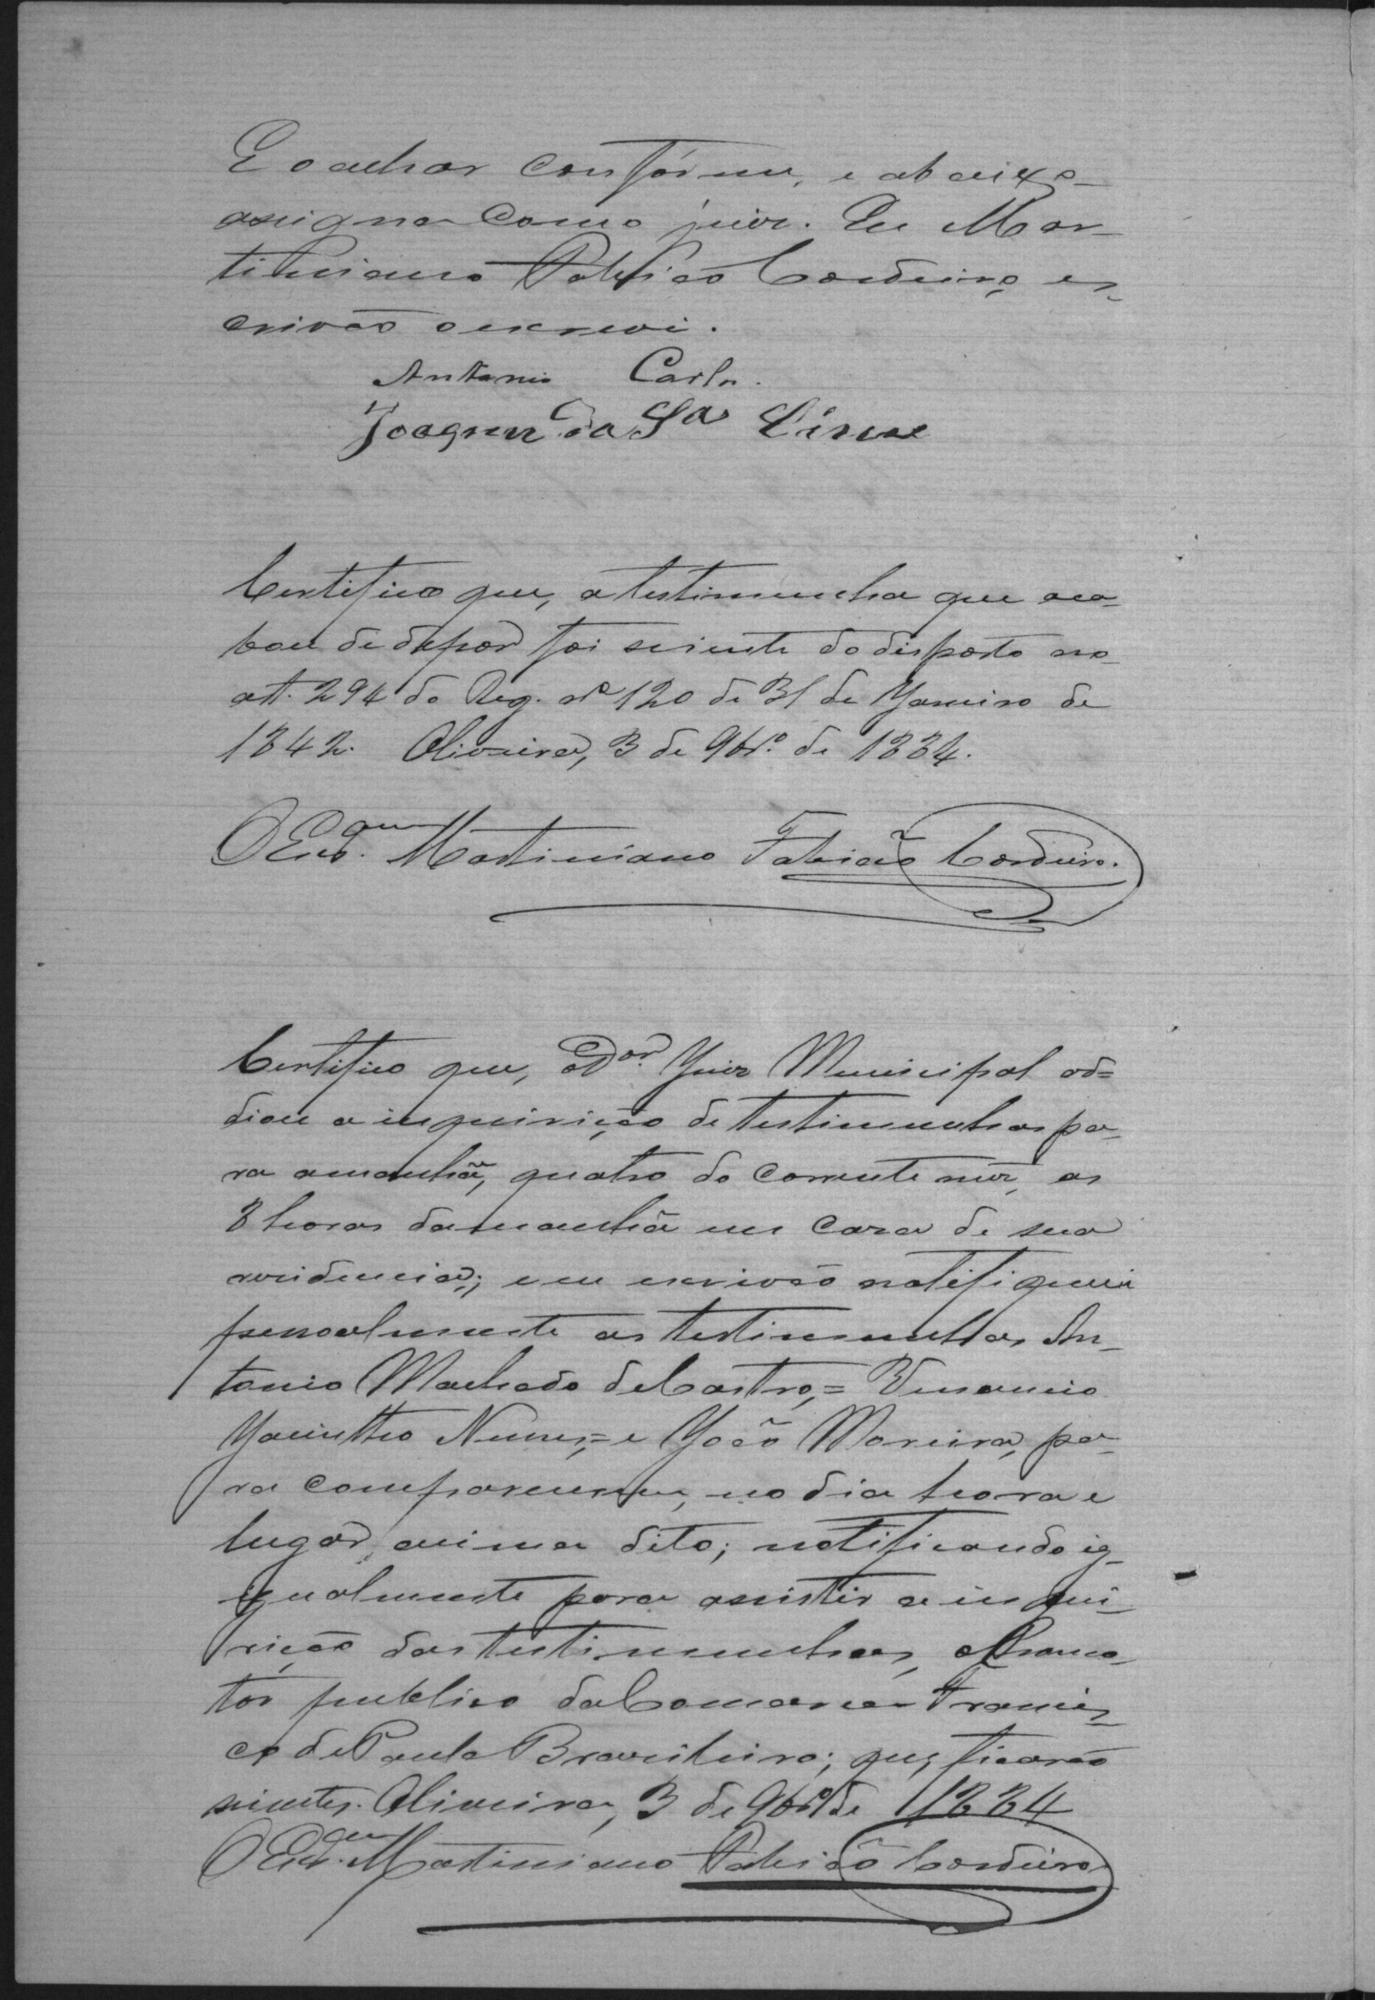 E o achar confórme, e abaixo
assigna como juiz. Eu Mar-
tiniano Fabricio Cordeiro, es-
crivão o escrevi.
Antonio Carlos.
Joaquim da Sa Lima
Certifico que, a testimunha que aca-
bou de depor foi sciente do disposto no
art. 294 do Reg. nº 120 de 31 de Janeiro de
1842. Oliveira, 3 de 9brº. de 1884.
O Escam. Martiniano Fabricio Cordeiro.
Certifico que, o Dor. Juiz Municipal ad=
diou a inquirição de testimunhas pa-
ra amanhã, quatro do corrente mez, as
8 horas da manhã em caza de sua
rezidencia; e eu escrivão notifiquei
pessoalmente as testimunhas An-
tonio Machado de Castro, = Venancio
Jacintho Nunes, = e João Moreira, pa-
ra comparecerem, no dia hora e
lugar acima dito; notificando ig-
gualmente para assistir a inqui-
rição das testimunhas, o Promo-
tor publico da Comarca Francis-
co de Paula Brazileiro; que, ficarão
scientes. Oliveira, 3 de 9brº de 1884
O Escam. Martiniano Fabricio Cordeiro